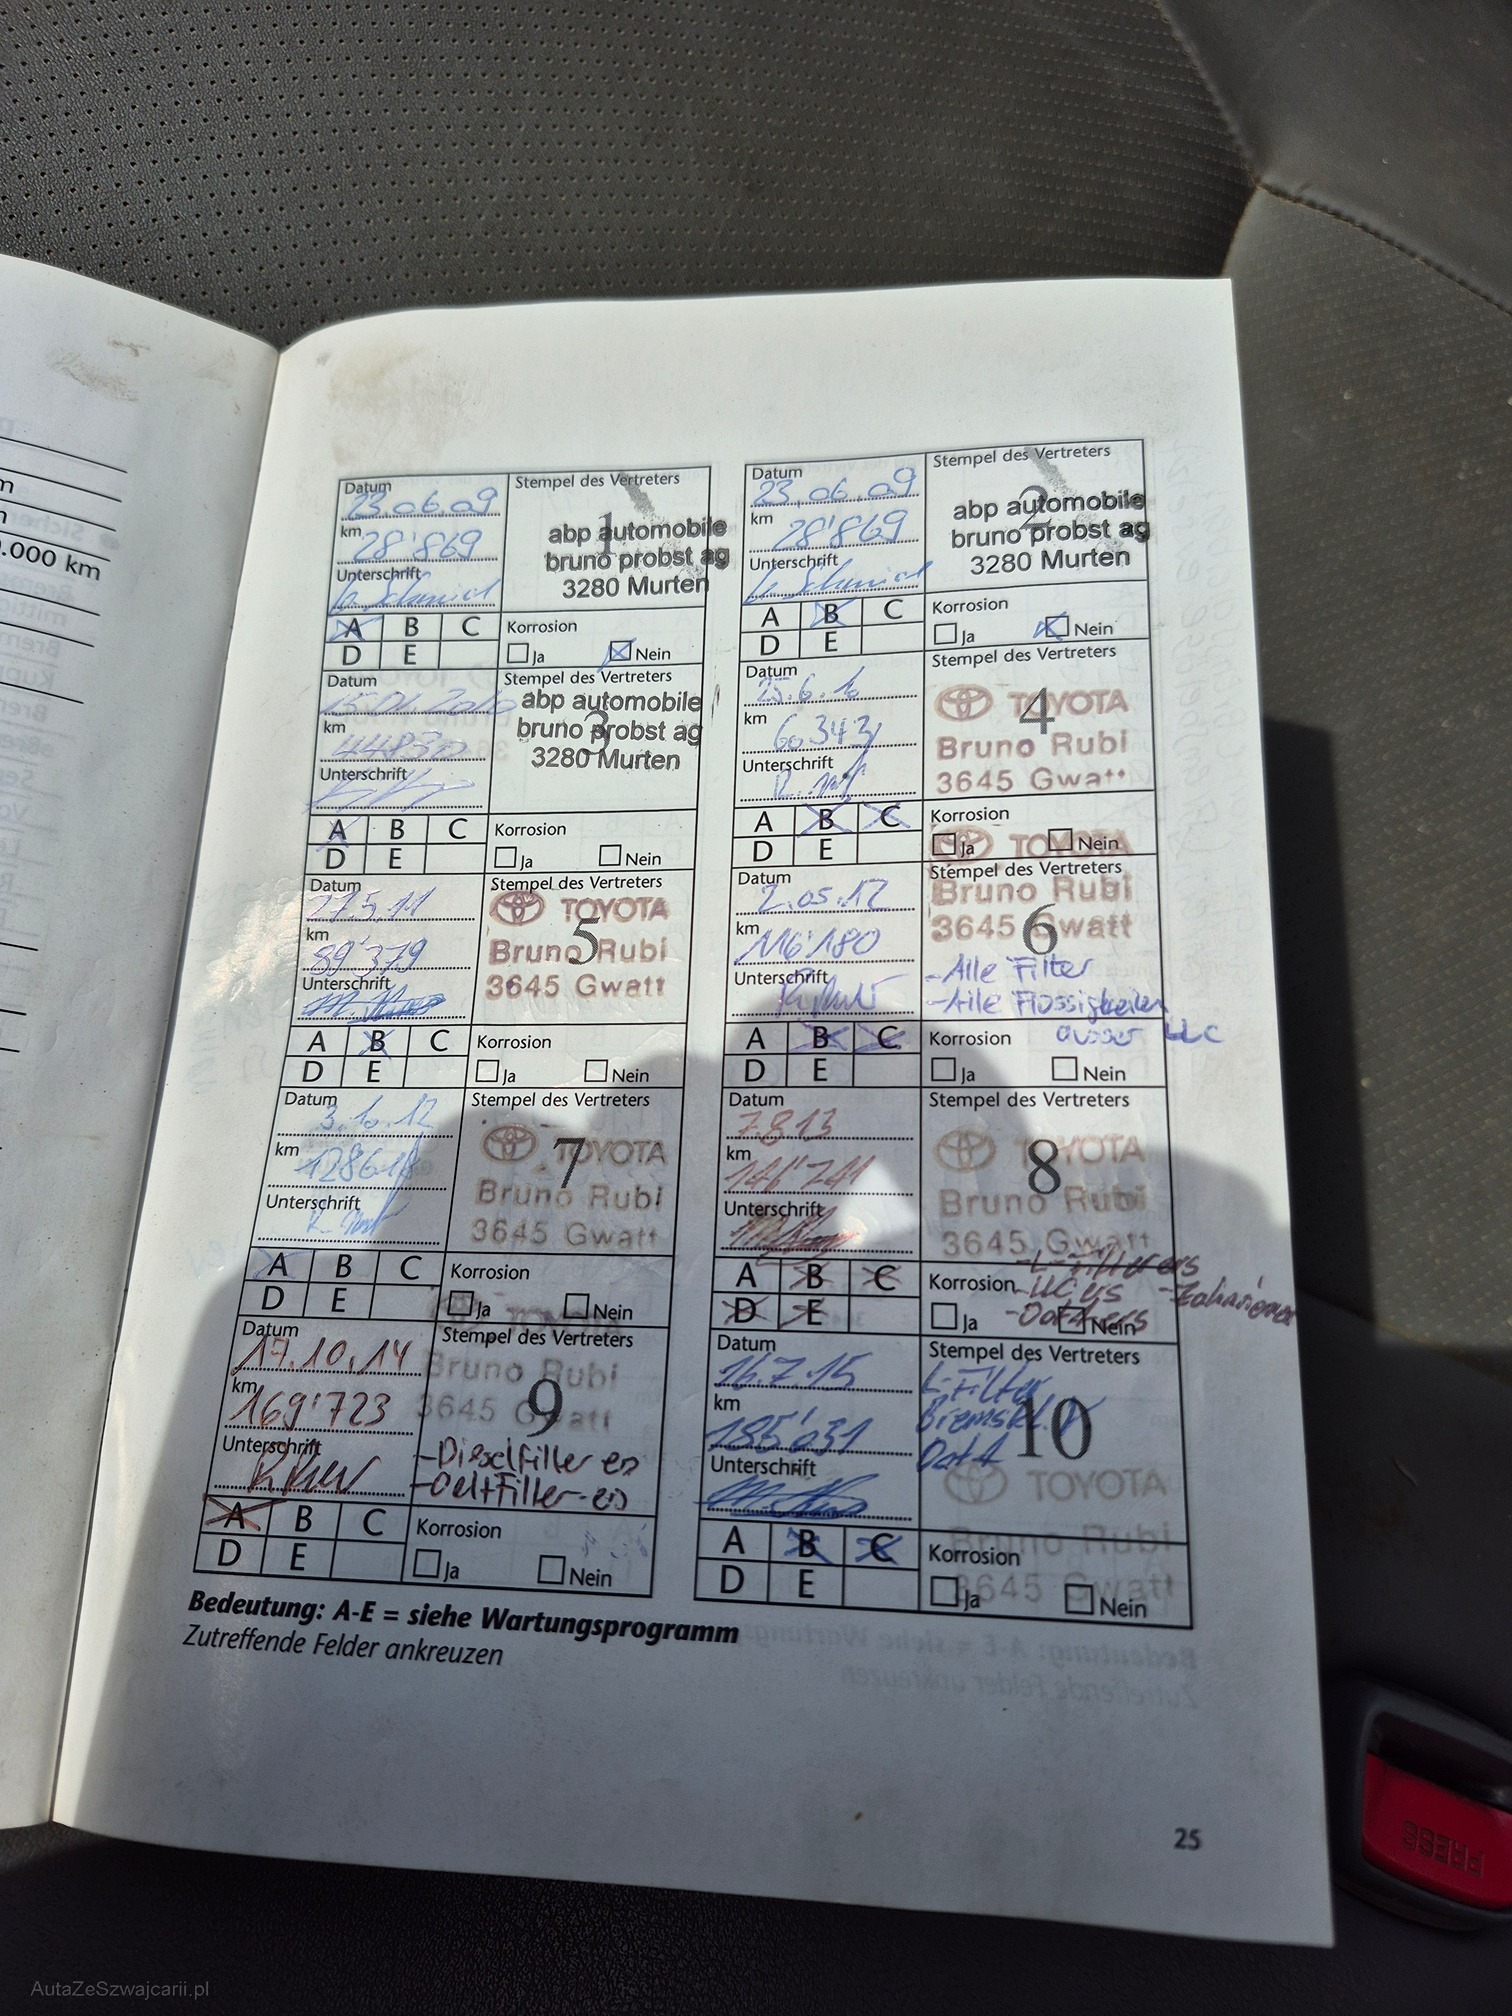 .000 km
Datum
23.06.09
km
28'869
Unterschrift
Stempel des Vertreters
1
abp automobile
bruno probst ag
3280 Murten
A B C
D E
Korrosion
Ja Nein
Datum
23.06.09
km
28'869
Unterschrift
Stempel des Vertreters
2
abp automobile
bruno probst ag
3280 Murten
A B C
D E
Korrosion
Ja Nein
Datum
15.01.2010
km
44830
Unterschrift
Stempel des Vertreters
3
abp automobile
bruno probst ag
3280 Murten
A B C
D E
Korrosion
Ja Nein
Datum
km
Unterschrift
Stempel des Vertreters
4
TOYOTA
Bruno Rubi
3645 Gwatt
A B C
D E
Korrosion
Ja Nein
Datum
27.5.11
km
89'379
Unterschrift
Stempel des Vertreters
5
TOYOTA
Bruno Rubi
3645 Gwatt
A B C
D E
Korrosion
Ja Nein
Datum
2.05.12
km
116'180
Unterschrift
TOYOTA
Stempel des Vertreters
6
Bruno Rubi
3645 Gwatt
-Alle Filter
-Alle Flüssigkeiten
ausser LLC
A B C
D E
Korrosion
Ja Nein
Datum
3.10.12
km
Unterschrift
Stempel des Vertreters
7
TOYOTA
Bruno Rubi
3645 Gwatt
A B C
D E
Korrosion
Ja Nein
Datum
7.8.13
km
Unterschrift
Stempel des Vertreters
8
TOYOTA
Bruno Rubi
3645 Gwatt
A B C
D E
Korrosion
Ja Nein
Datum
17.10.14
km
169'723
Unterschrift
TOYOTA
Stempel des Vertreters
9
Bruno Rubi
3645 Gwatt
-Dieselfilter
A B C
D E
Korrosion
Ja Nein
Datum
16.7.15
km
185'031
Unterschrift
Stempel des Vertreters
L-Filter
10
TOYOTA
Bruno Rubi
3645 Gwatt
A B C
D E
Korrosion
Ja Nein
Bedeutung: A-E = siehe Wartungsprogramm
Zutreffende Felder ankreuzen
25
PRESS
AutaZeSzwajcarii.pl